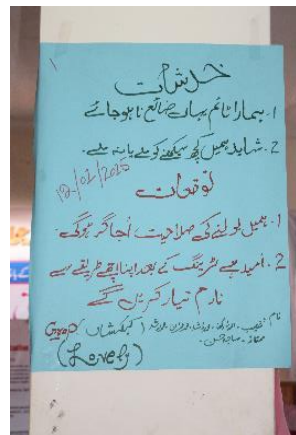 خدشات
1- ہمارا ٹائم یہاں ضائع نا ہو جائے
2- شاید ہمیں کچھ سیکھنے کو ملے یا نہ ملے-
12/02/2025
توقعات
1- ہمیں بولنے کی صلاحیت اُجاگر ہوگی-
2- اُمید ہے ٹریننگ کے بعد اپنا اچھے طریقے سے
فارم تیار کریں گے
نام
Group
کہکشاں
(Lovely)